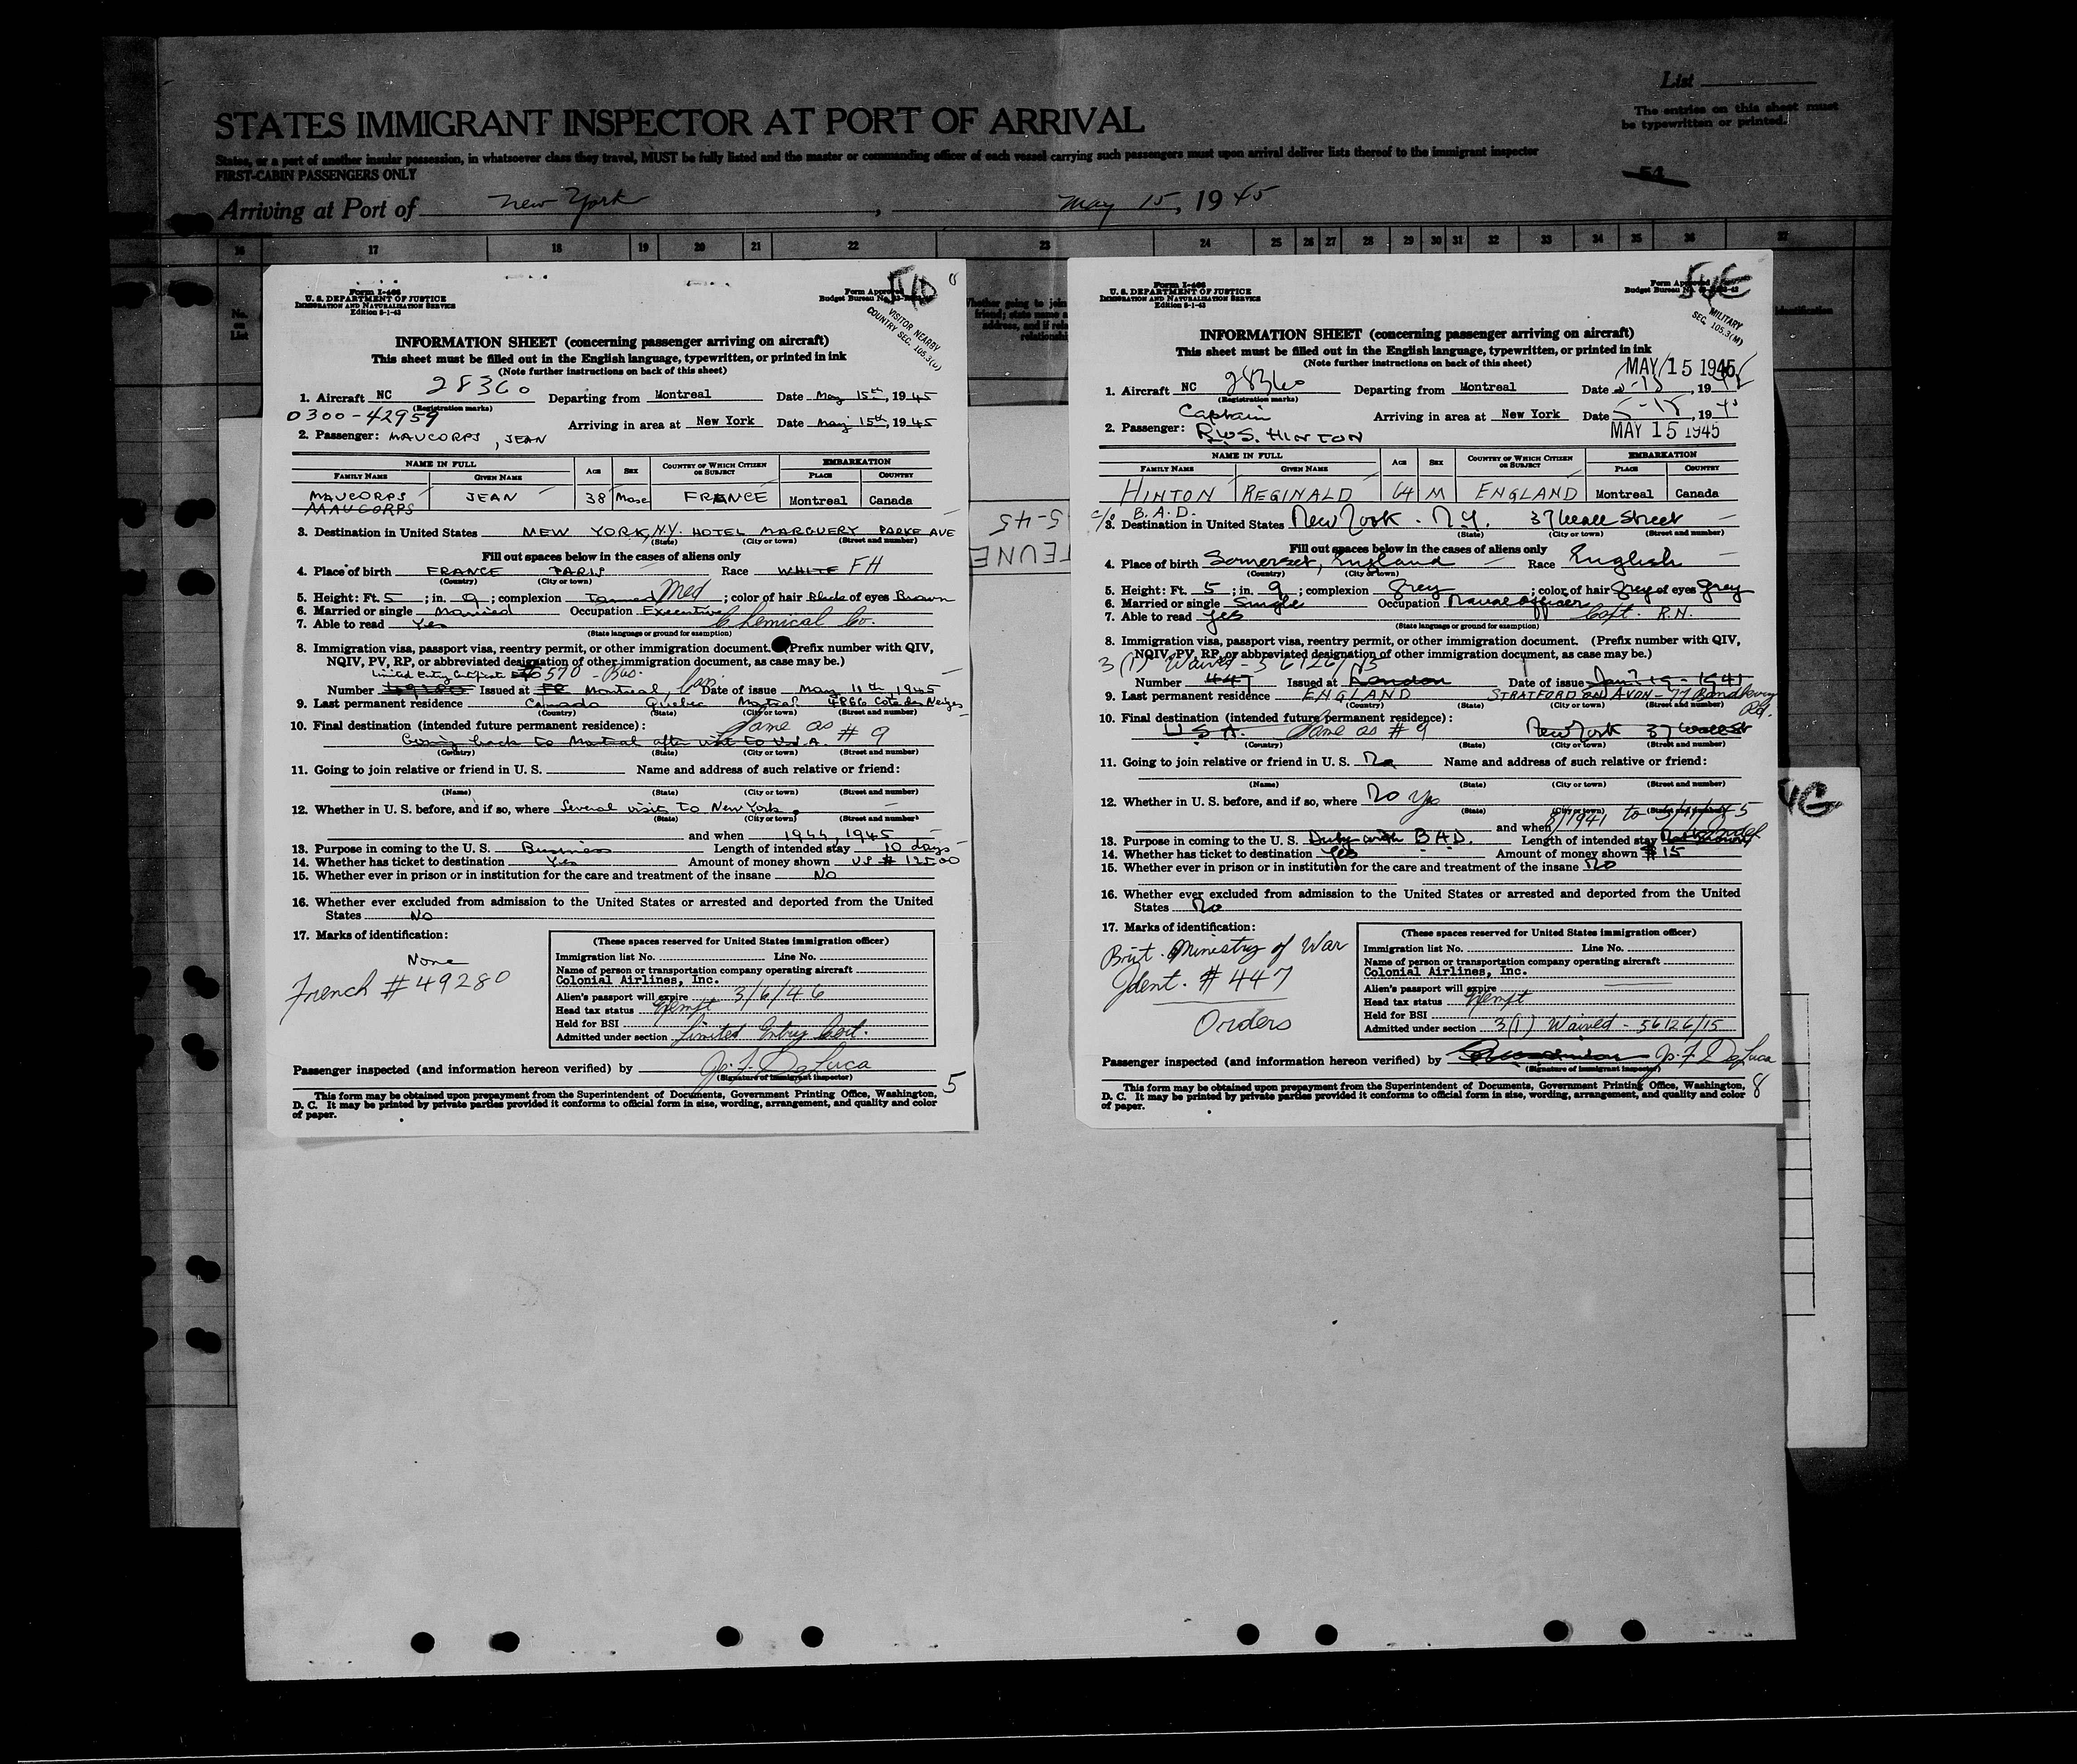 List
The entries on this sheet must
be typewritten or printed.
STATES IMMIGRANT INSPECTOR AT PORT OF ARRIVAL
States, or a part of another insular possession, in whatsoever class they travel, MUST be fully listed and the master or commanding officer of each vessel carrying such passengers must upon arrival deliver lists thereof to the immigrant inspector
FIRST-CABIN PASSENGERS ONLY
54
Arriving at Port of New York, May 15, 1945
16 17 18 19 20 21 22 23 24 25 26 27 28 29 30 31 32 33 34 35 36 37
No.
on
List
Form I-466
U. S. DEPARTMENT OF JUSTICE
IMMIGRATION AND NATURALIZATION SERVICE
Edition 5-1-43
Form Approved
Budget Bureau No.
54D
VISITOR NEARBY
COUNTRY SEC. 105.3(U)
INFORMATION SHEET (concerning passenger arriving on aircraft)
This sheet must be filled out in the English language, typewritten, or printed in ink
(Note further instructions on back of this sheet)
1. Aircraft NC 28360 Departing from Montreal Date May 15th, 1945
(Registration marks)
0300-42959
Arriving in area at New York Date May 15th, 1945
2. Passenger: MAUCORPS, JEAN
NAME IN FULL AGE SEX COUNTRY OF WHICH CITIZEN OR SUBJECT EMBARKATION
FAMILY NAME GIVEN NAME PLACE COUNTRY
MAUCORPS JEAN 38 Masc FRANCE Montreal Canada
MAUCORPS
3. Destination in United States NEW YORK, N.Y. HOTEL MARGUERY PARKE AVE
(State) (City or town) (Street and number)
Fill out spaces below in the cases of aliens only
4. Place of birth FRANCE PARIS Race WHITE FH
(Country) (City or town)
5. Height: Ft. 5; in. 9; complexion Tanned Med; color of hair Black of eyes Brown
6. Married or single Married Occupation Executive Chemical Co.
7. Able to read Yes
(State language or ground for exemption)
8. Immigration visa, passport visa, reentry permit, or other immigration document. (Prefix number with QIV,
NQIV, PV, RP, or abbreviated designation of other immigration document, as case may be.)
Limited Entry Certificate 570 - Bus.
Number 49280 Issued at Montreal, Can Date of issue May 11th, 1945
9. Last permanent residence Canada Quebec Montreal 4866 Cote des Neiges
(Country) (State) (City or town) (Street and number)
10. Final destination (intended future permanent residence): Same as #9
Coming back to Montreal after visit to U.S.A.
(Country) (State) (City or town) (Street and number)
11. Going to join relative or friend in U. S. Name and address of such relative or friend:
(Name) (State) (City or town) (Street and number)
12. Whether in U. S. before, and if so, where Several visits to New York
(State) (City or town) (Street and number)
and when 1944, 1945
13. Purpose in coming to the U. S. Business Length of intended stay 10 days
14. Whether has ticket to destination Yes Amount of money shown US $ 125.00
15. Whether ever in prison or in institution for the care and treatment of the insane No
16. Whether ever excluded from admission to the United States or arrested and deported from the United
States No
17. Marks of identification:
None
French # 49280
(These spaces reserved for United States immigration officer)
Immigration list No. Line No.
Name of person or transportation company operating aircraft
Colonial Airlines, Inc.
Alien's passport will expire 3/6/46
Head tax status Exempt
Held for BSI
Admitted under section Limited Entry Cert.
Passenger inspected (and information hereon verified) by J. F. DeLuca
(Signature of immigrant inspector)
5
This form may be obtained upon prepayment from the Superintendent of Documents, Government Printing Office, Washington,
D. C. It may be printed by private parties provided it conforms to official form in size, wording, arrangement, and quality and color
of paper.
Form I-466
U. S. DEPARTMENT OF JUSTICE
IMMIGRATION AND NATURALIZATION SERVICE
Edition 5-1-43
Form Approved
Budget Bureau No.
54E
MILITARY
SEC. 105.3(M)
INFORMATION SHEET (concerning passenger arriving on aircraft)
This sheet must be filled out in the English language, typewritten, or printed in ink
(Note further instructions on back of this sheet)
MAY 15 1945
1. Aircraft NC 28360 Departing from Montreal Date 5-15, 1945
(Registration marks)
Captain Arriving in area at New York Date 5-15, 1945
2. Passenger: R.W.S. HINTON MAY 15 1945
NAME IN FULL AGE SEX COUNTRY OF WHICH CITIZEN OR SUBJECT EMBARKATION
FAMILY NAME GIVEN NAME PLACE COUNTRY
HINTON REGINALD 64 M ENGLAND Montreal Canada
c/o B.A.D.
3. Destination in United States New York. N.Y. 37 Wall Street
(State) (City or town) (Street and number)
Fill out spaces below in the cases of aliens only
4. Place of birth Somerset, England Race English
(Country) (City or town)
5. Height: Ft. 5; in. 9; complexion Grey; color of hair Grey of eyes Grey
6. Married or single Single Occupation Naval officer Capt. R.N.
7. Able to read Yes
(State language or ground for exemption)
8. Immigration visa, passport visa, reentry permit, or other immigration document. (Prefix number with QIV,
NQIV, PV, RP, or abbreviated designation of other immigration document, as case may be.)
3(1) Waived - 56126/15
Number 447 Issued at London Date of issue Jan. 19 - 1941
9. Last permanent residence ENGLAND STRATFORD ON AVON - 77 Bandbury Rd.
(Country) (State) (City or town) (Street and number)
10. Final destination (intended future permanent residence):
U.S.A. Same as #9 New York 37 Wall St
(Country) (State) (City or town) (Street and number)
11. Going to join relative or friend in U. S. No Name and address of such relative or friend:
(Name) (State) (City or town) (Street and number)
12. Whether in U. S. before, and if so, where No Yes
(State) (City or town) (Street and number)
and when 8/1941 to
13. Purpose in coming to the U. S. Duty with B.A.D. Length of intended stay
14. Whether has ticket to destination Yes Amount of money shown $15
15. Whether ever in prison or in institution for the care and treatment of the insane No
16. Whether ever excluded from admission to the United States or arrested and deported from the United
States No
17. Marks of identification:
Brit. Ministry of War
Ident. # 447
Orders
(These spaces reserved for United States immigration officer)
Immigration list No. Line No.
Name of person or transportation company operating aircraft
Colonial Airlines, Inc.
Alien's passport will expire
Head tax status Exempt
Held for BSI
Admitted under section 3(1) Waived - 56126/15
Passenger inspected (and information hereon verified) by J. F. DeLuca
(Signature of immigrant inspector)
8
This form may be obtained upon prepayment from the Superintendent of Documents, Government Printing Office, Washington,
D. C. It may be printed by private parties provided it conforms to official form in size, wording, arrangement, and quality and color
of paper.